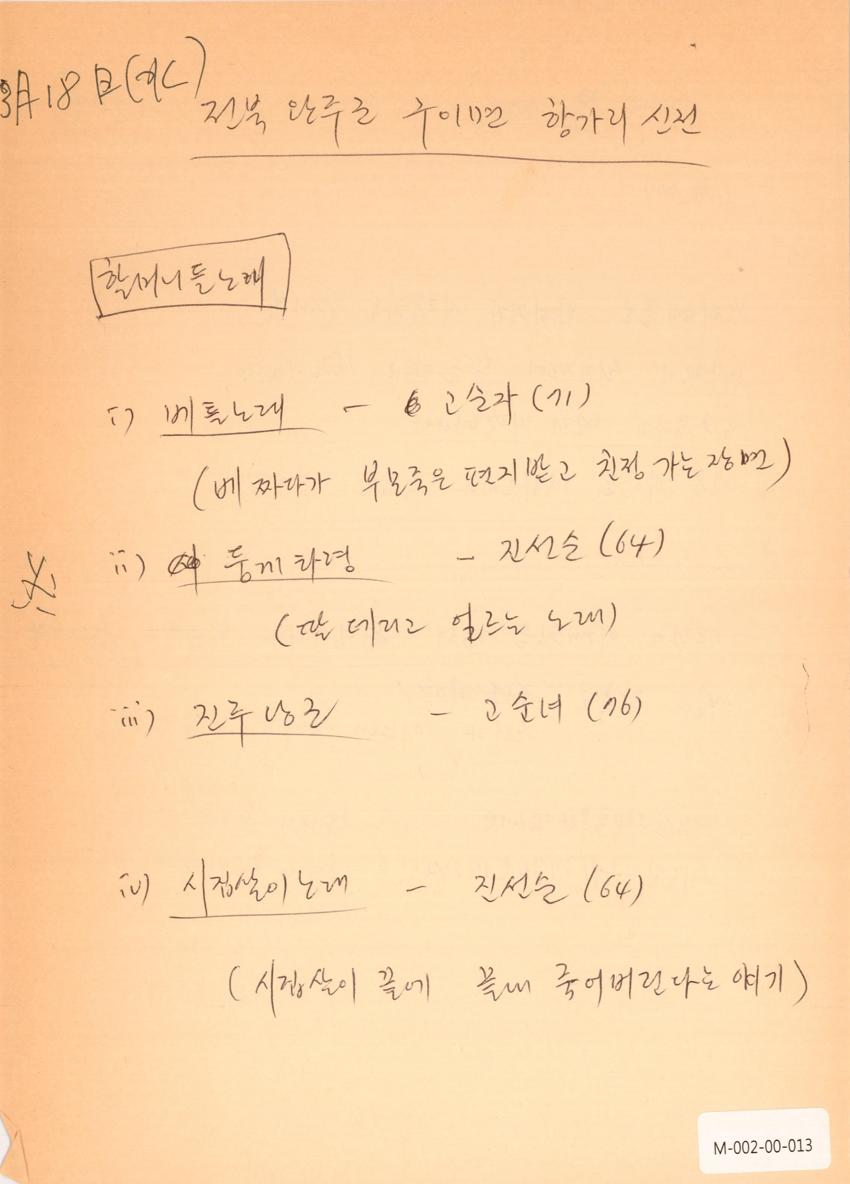 3月18日(水)
전북 완주군 구이면 항가리 신전
할머니들노래
i) 베틀노래 - 고순자 (71)
(베 짜다가 부모죽은 편지받고 친정 가는 장면)
※ ii) 둥게 타령 - 진선순 (64)
(딸 데리고 얼르는 노래)
iii) 진주낭군 - 고순녀 (76)
iv) 시집살이노래 - 진선순 (64)
(시집살이 끝에 끝내 죽어버린다는 얘기)
M-002-00-013